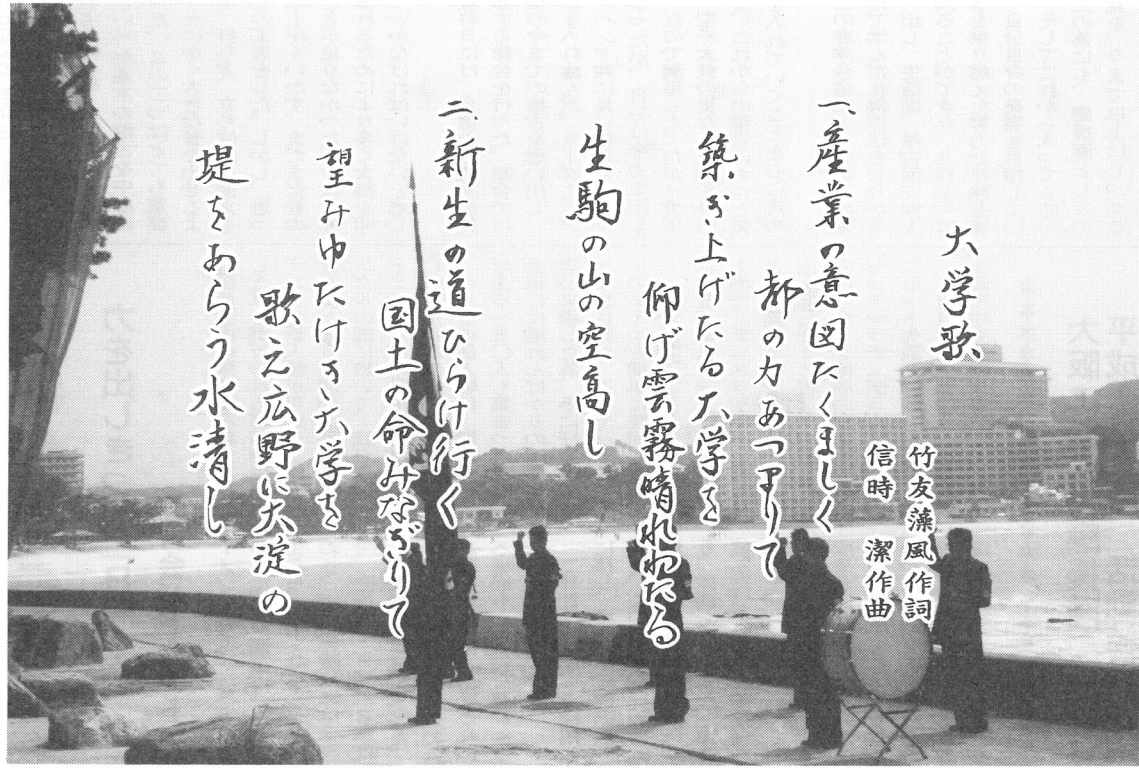 大学歌
竹友藻風作詞
信時　潔作曲
一、産業の意図たくましく
都の力あつまりて
築き上げたる大学を
仰げ雲霧晴れわたる
生駒の山の空高し
二、新生の道ひらけ行く
国土の命みなぎりて
望みゆたけき大学を
歌え広野に大淀の
堤をあらう水清し